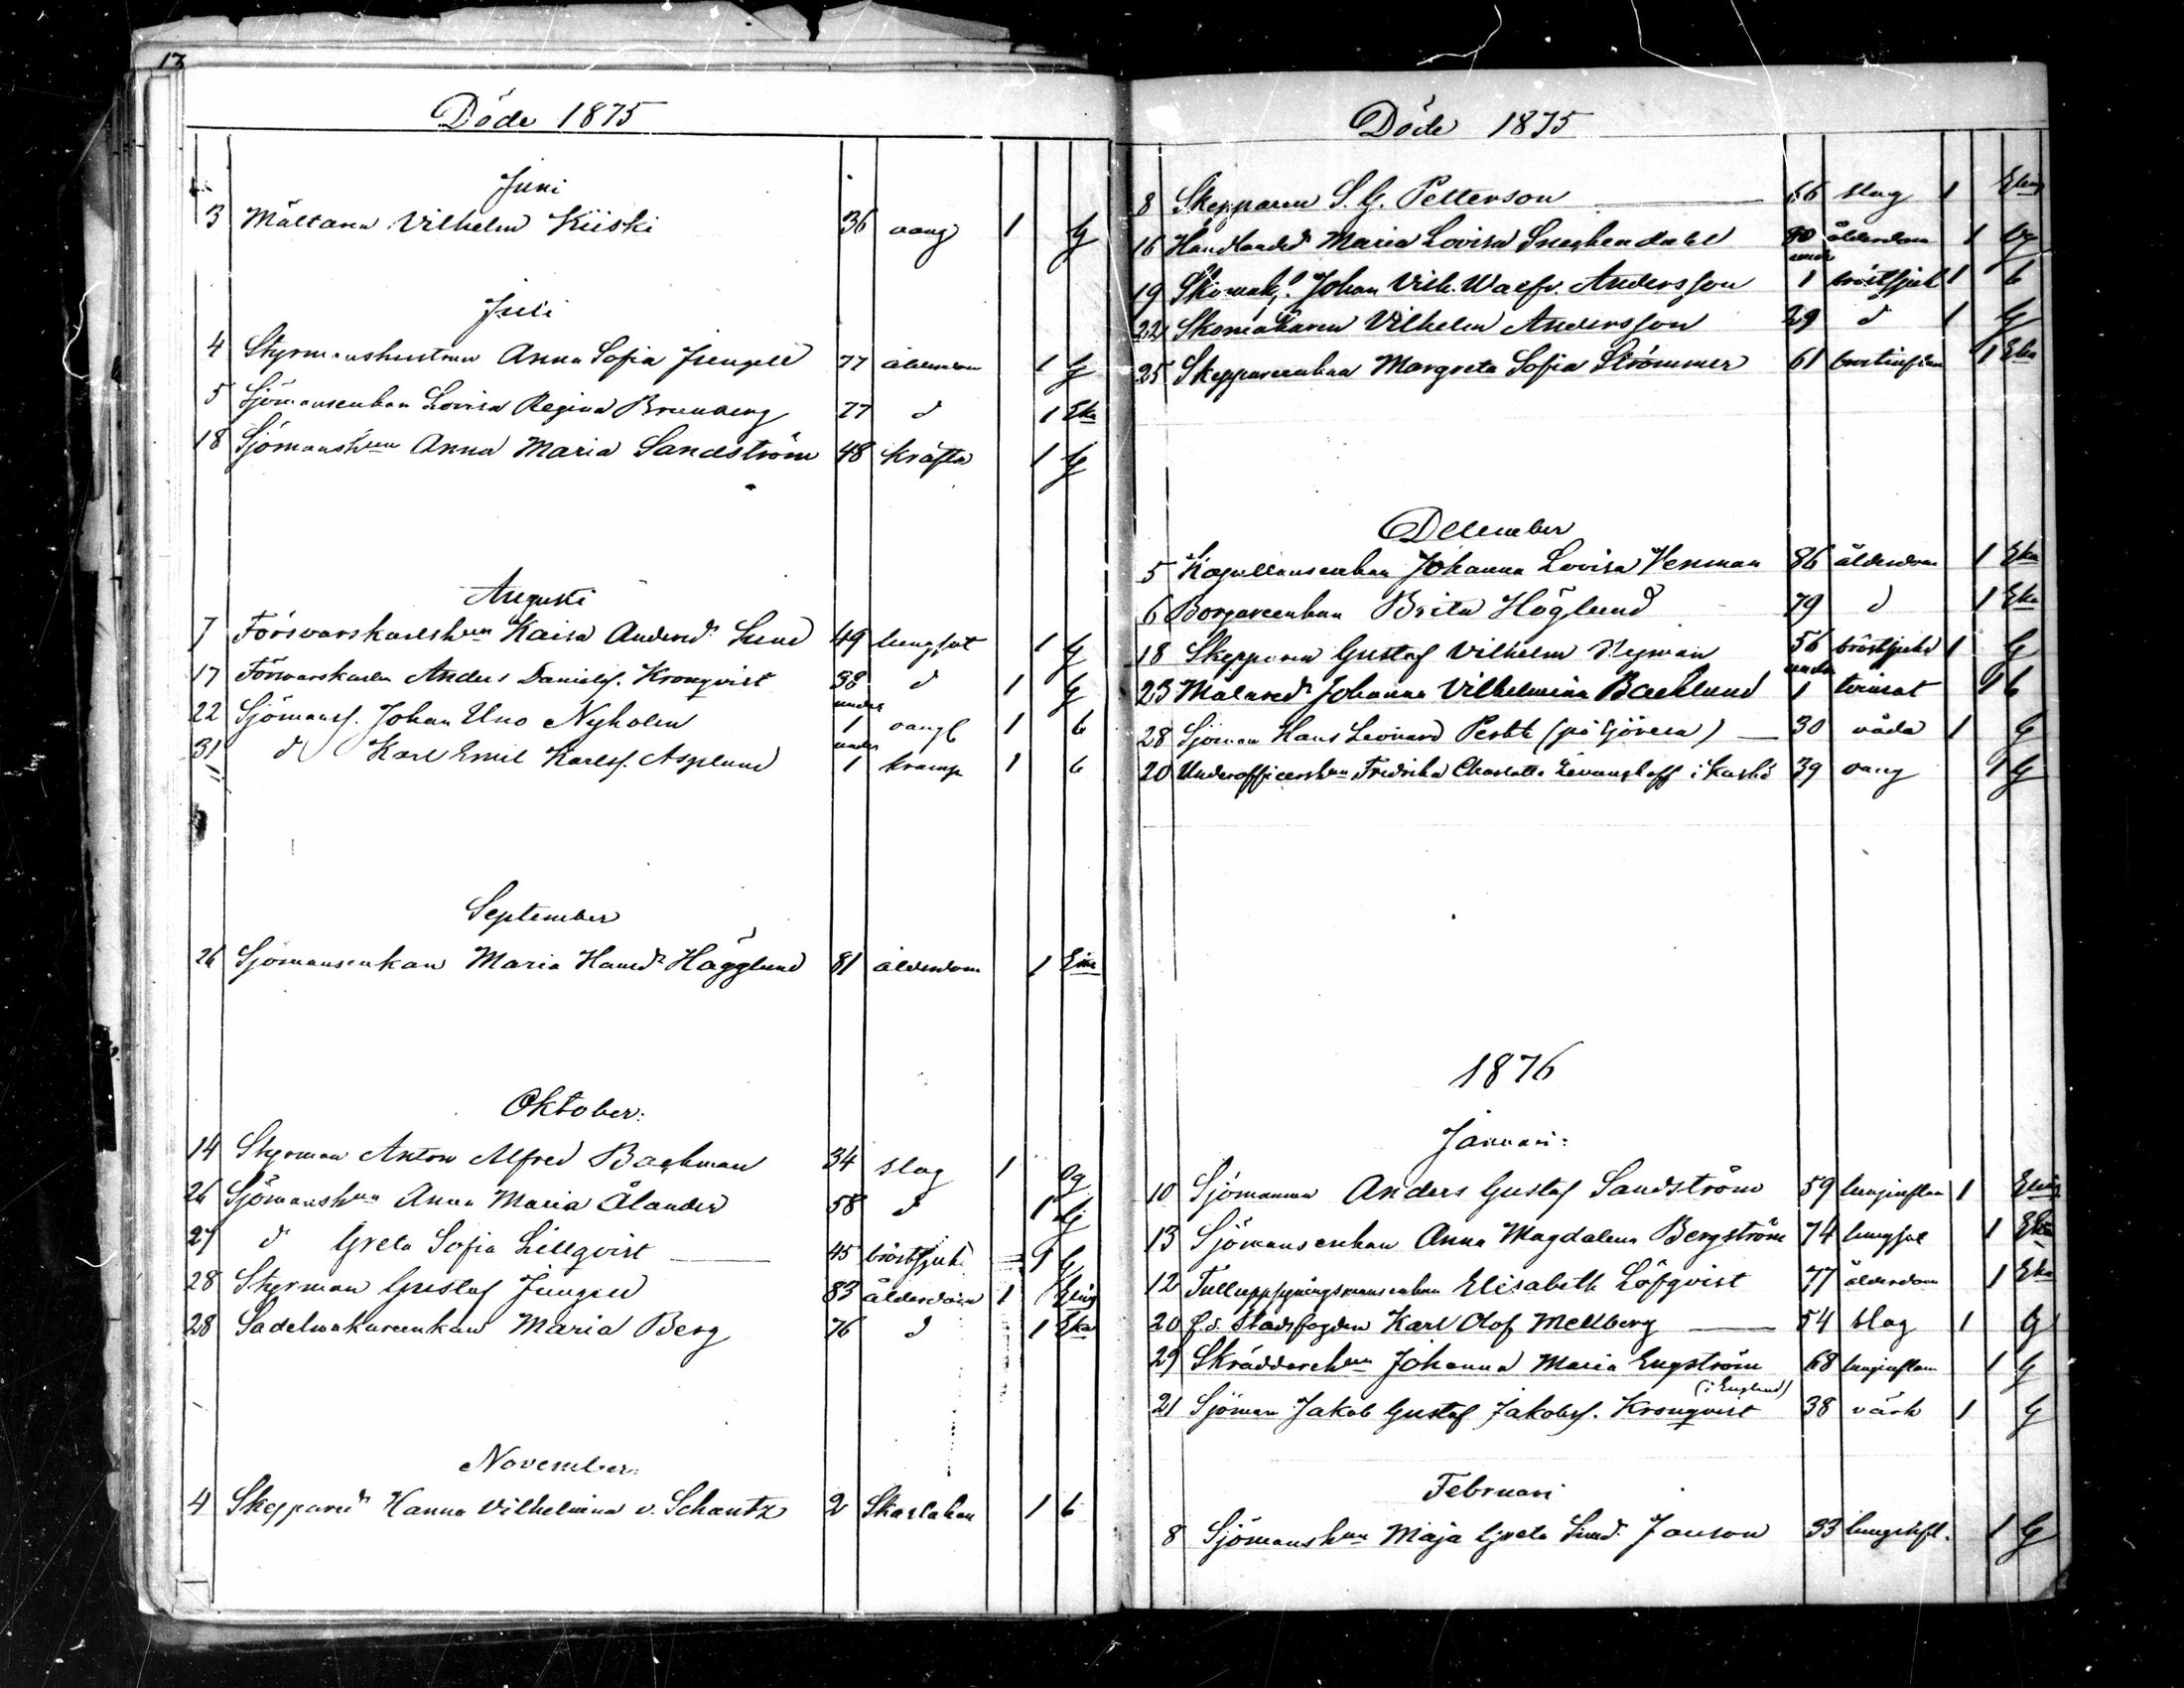 13
Döde 1875
Juni
3 Mältaren Vilhelm Kiiski 36 oang 1 G
Juli
4 Styrmanshustrun Anna Sofia Jungell 77 ålderdom 1 G
5 Sjömansenkan Lovisa Regina Brunberg 77 d 1 Eka
18 Sjömanshun Anna Maria Sandström 48 kräfta 1 G
Augusti
7 Försvarskarlshun Kaisa Andersdr Lund 49 lungsot 1 G
17 Försvarskarlen Anders Danielss. Kronqvist 38 d 1 G
under
22 Sjömanss. Johan Uno Nyholm 1 oang 1 b
under
31 d Karl Emil Karlss. Asplund 1 kramp 1 b
September
26 Sjömansenkan Maria Hansdr Hägglund 81 ålderdom 1 Eka
Oktober:
14 Styrman Anton Alfred Backman 34 slag 1 Og
26 Sjömanshun Anna Maria Ålander 58 d 1 G
27 d Greta Sofia Lillqvist 45 bröstsjukd 1 G
28 Styrman Gustaf Jungell 83 ålderdom 1 Eling
28 Sadelmakareenkan Maria Berg 76 d 1 Eka
November:
4 Skepparedr Hanna Vilhelmina v. Schantz 2 Skarlakan 1 b
Döde 1875
8 Skepparen S. G. Petterson 66 slag 1 Eling
16 Handlandedr Maria Lovisa Sneckendahl 80 ålderdom 1 Og
under
19 Skomak.s. Johan Vilh. Waefr. Andersson 1 bröstsjuk 1 b
22 Skomakaren Vilhelm Andersson 29 d 1 G
25 Skeppareenkan Margreta Sofia Strömmer 61 bröstinflam 1 Eka
December
5 Kapellansenkan Johanna Lovisa Venman 86 ålderdom 1 Eka
6 Borgareenkan Brita Höglund 79 d 1 Eka
18 Skepparen Gustaf Vilhelm Nyman 56 bröstsjukd 1 G
under
23 Målaredr Johanna Vilhelmina Backlund 1 tvinsot 1 b
28 Sjöman Hans Leonard Perth (på Sjöresa) 30 våda 1 G
20 Underofficershun Fredrika Charlotta Levanskoff i Kaskö 39 oang 1 G
1876
Januari:
10 Sjömannen Anders Gustaf Sandström 59 lunginflam 1 Eling
13 Sjömansenkan Anna Magdalena Bergström 74 lungsot 1 Eka
12 Tulluppsyningsmansenkan Elisabeth Löfqvist 77 ålderdom 1 Eka
20 f.d. Stadsfogden Karl Olof Mellberg 54 slag 1 G
29 Skräddarehun Johanna Maria Engström 68 lunginflam 1 G
(i England)
21 Sjöman Jakob Gustaf Jakobss. Kronqvist 38 värk 1 G
Februari
8 Sjömanshun Maja Greta Simdr Janson 33 lunginfl. 1 G